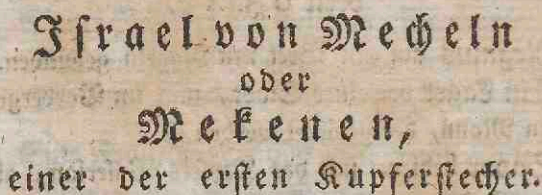 Iſrael von Mecheln
oder
Mekenen,
einer der erſten Kupferſtecher.